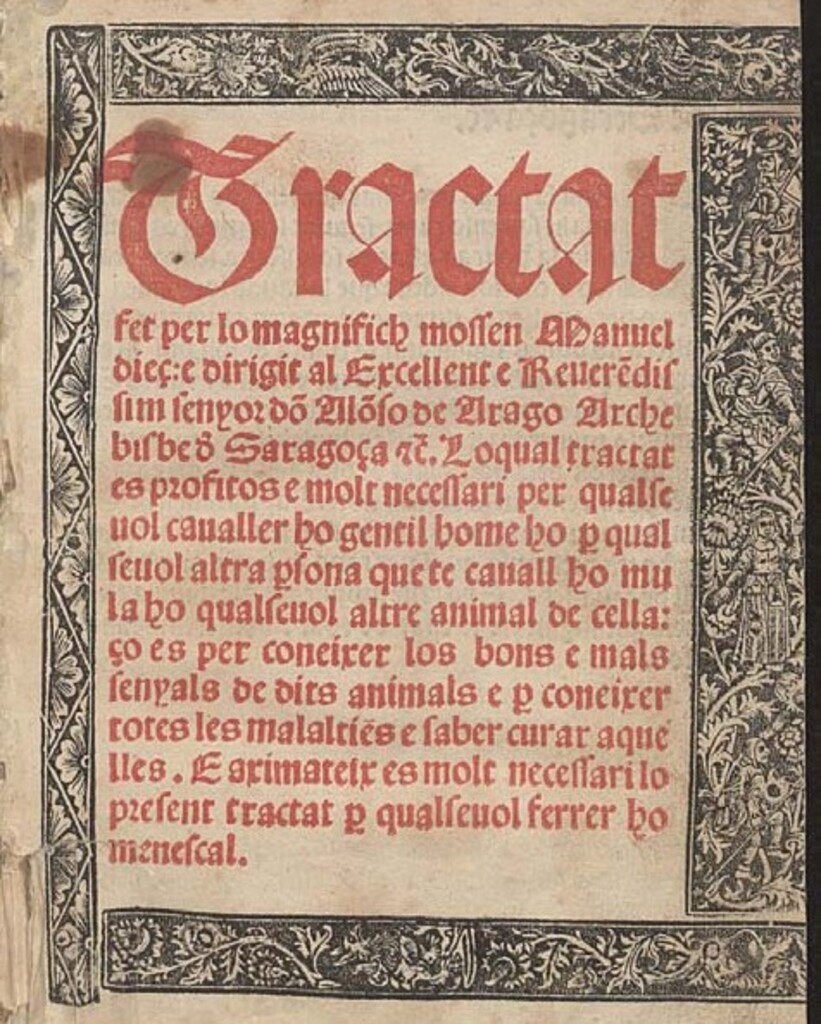 Tractat
fet per lo magnifich mossen Manuel
dieç: e dirigit al Excellent e Reuerēdis
sim senyor dō Alōso de Arago Arche
bisbe d̄ Saragoça ⁊c̄. Lo qual tractat
es profitos e molt necessari per qualse
uol caualler ho gentil home ho ꝑ qual
seuol altra ꝑsona que te cauall ho mu
la ho qualseuol altre animal de cella:
ço es per coneixer los bons e mals
senyals de dits animals e ꝑ coneixer
totes les malalties e saber curar aque
lles. E aximateix es molt necessari lo
present tractat ꝑ qualseuol ferrer ho
menescal.